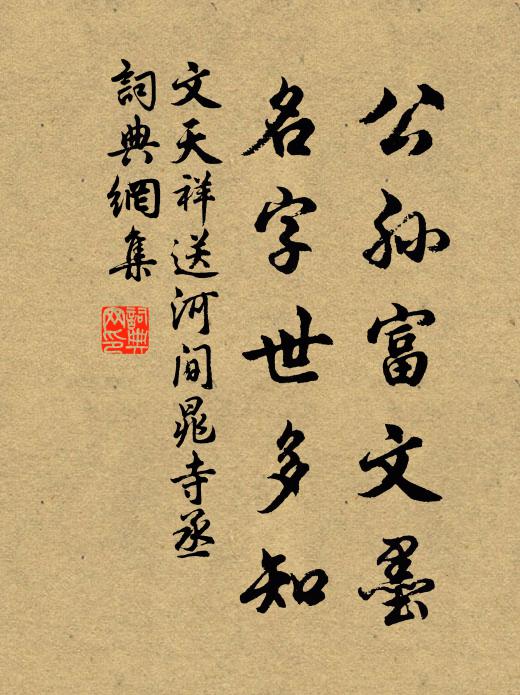 公孙富文墨
名字世多知
文天祥送河間晁寺丞
詞典網集
詞典
网印